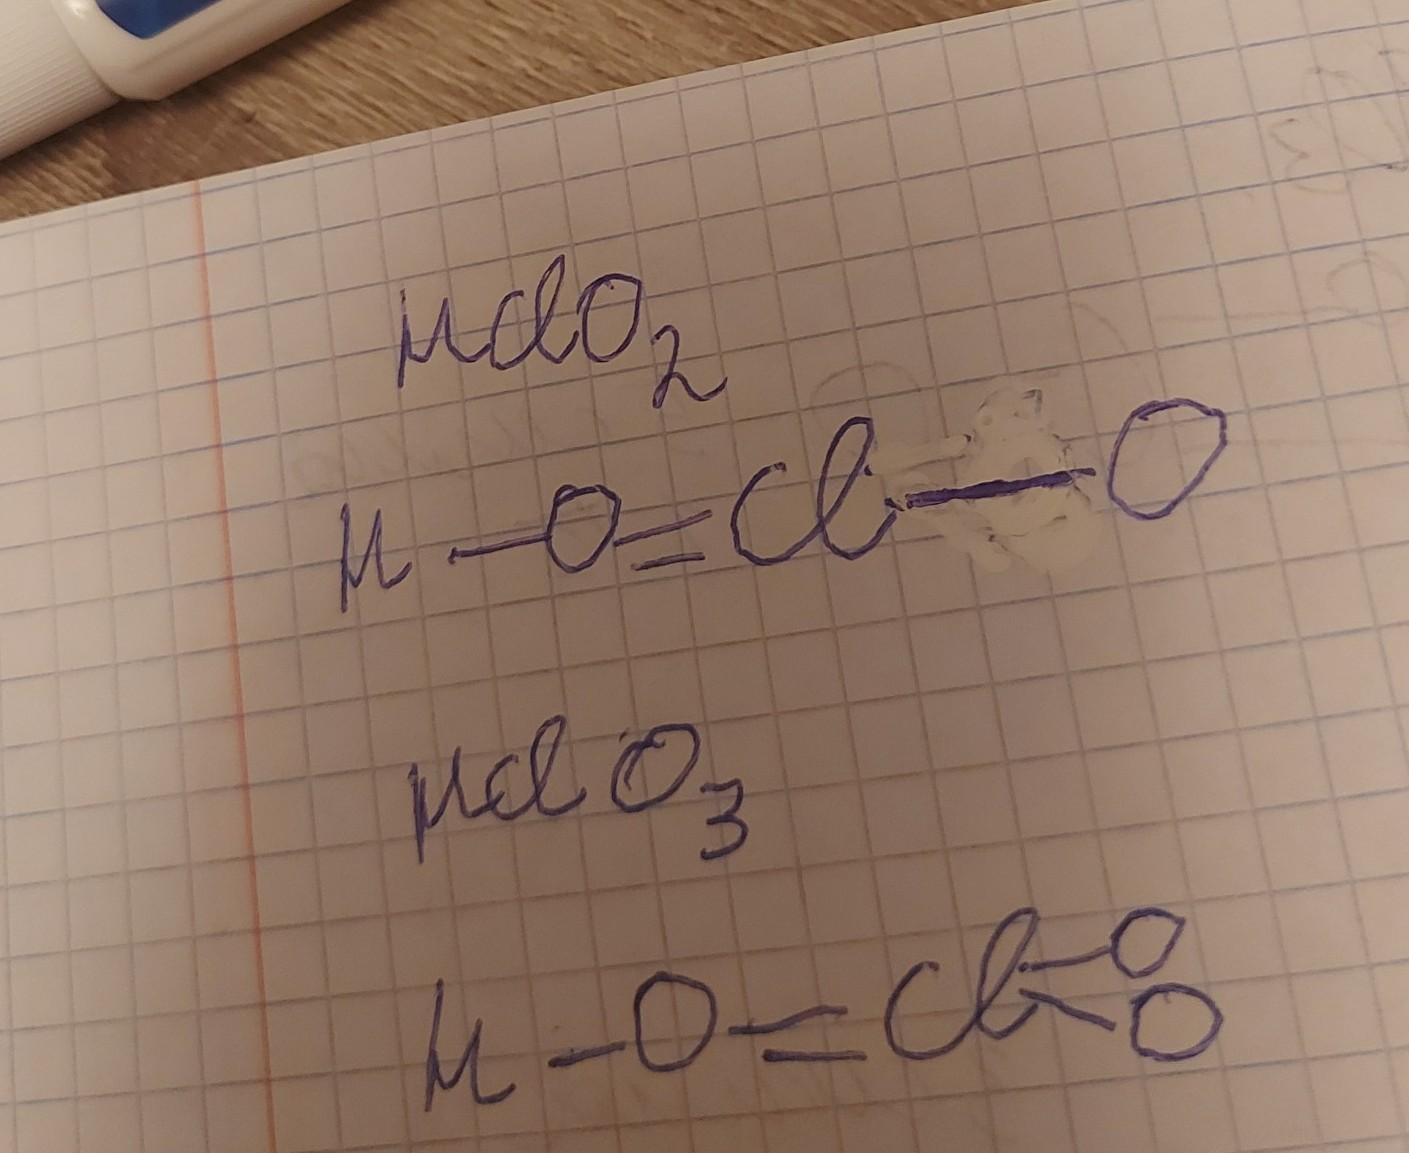 HClO₂
H - O = Cl - O
HClO₃
H - O = Cl - O
O